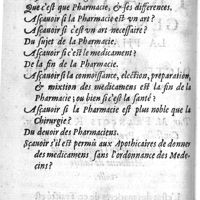 Que c'est que Pharmacie, & ses differences.
Asçauoir si la Pharmacie est vn art?
Asçauoir si c'est vn art necessaire?
Du sujet de la Pharmacie.
Asçauoir si c'est le medicament?
De la fin de la Pharmacie.
Asçauoir si la connoissance, election, preparation,
& mixtion des medicamens est la fin de la
Pharmacie; ou bien si c'est la santé?
Asçauoir si la Pharmacie est plus noble que la
Chirurgie?
Du deuoir des Pharmaciens.
Sçauoir s'il est permis aux Apothicaires de donner
des medicamens sans l'ordonnance des Mede-
cins?